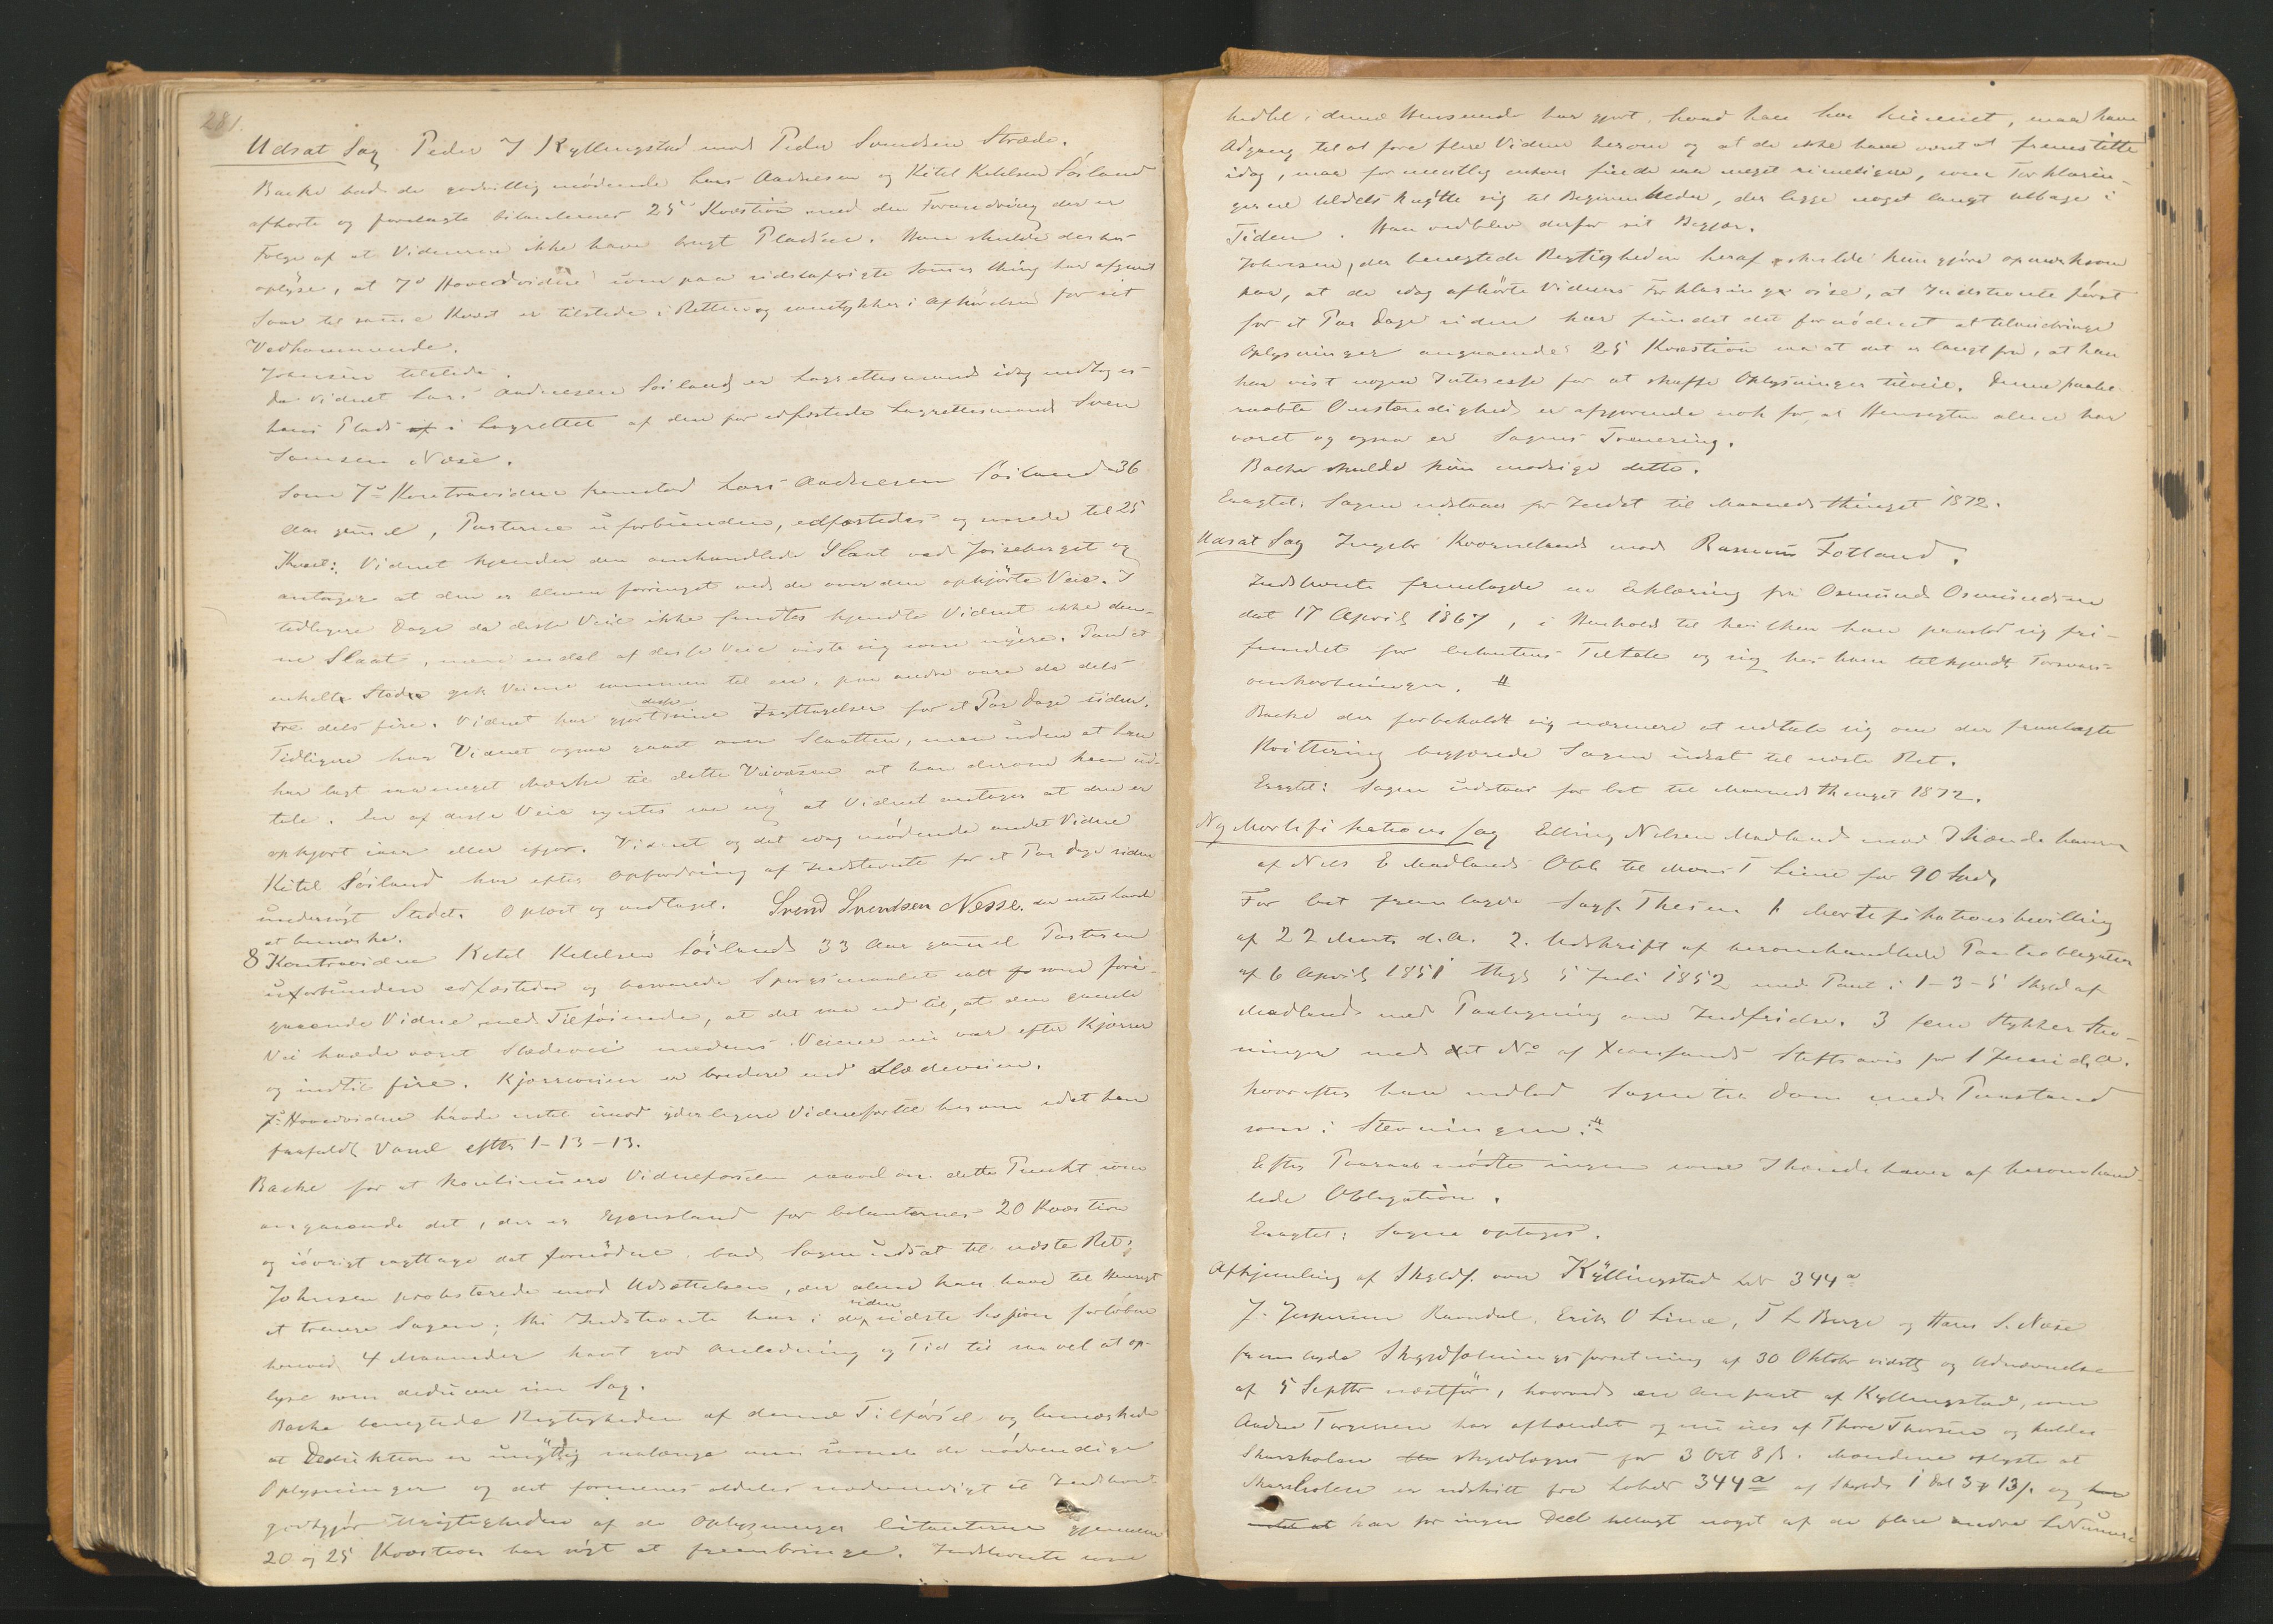 281.
Udsat Sag Peder J Kyllingstad mod Peder Svendsen Stræde.
Backe bad de godvillig mødende Lars Andresen og Ketel Ketelsen Söiland
afhørte og forelagte Citanternes 25 Kvæstion med den Forandring der er
Følge af at Vidnerne ikke have brugt Pladsene. Han skulde derhos
oplyse, at 7de Hovedvidne som paa sidstafvigte Sommerthing har afgivet
Svar til samme Kvæst er tilstede i Retten og samtykker i Afhørelsen for sit
Vedkommende.
Johnsen tilstede.
Da Vidnet Lars Andresen Söiland er Lagrettesmand idag indtoges
hans Plads i Lagrettet af den før edfæstede Lagrettesmand Sven
Samsen Næse.
Som 7de Kontravidne fremstod Lars Andresen Söiland 36
Aar gammel, Parterne uforbunden, edfæstedes og svarede til 25
Kvæst: Vidnet kjender den omhandlede Slaat ved Joiseberget og
antager at den er bleven forringet ved de over den opkjörte Veie. I
tidligere Dage da disse Veie ikke fandtes kjendte Vidnet ikke den-
ne Slaat, men endel af disse Veie viste sig som nyere. Paa et
enkelt Sted gik Veiene sammen til en, paa andre vare de dels
tre dels fire. Vidnet har gjort disse Iagttagelser for et Par Dage siden.
Tidligere har Vidnet ogsaa gaaet over Slaatten, men uden at han
har lagt saa meget Mærke til dette Veivæsen at han derom kan ud-
tale. En af disse Veie syntes saa ny at Vidnet antager at den er
opkjørt iaar eller ifjor. Vidnet og det idag mödende andet Vidne
Ketel Söiland har efter Opfordring af Indstevnte for et Par Dage siden
undersøgt Stedet. Oplæst og vedtaget. Svend Svendsen Nesse. der intet havde
at bemærke.
8 Kontravidne Ketel Ketelsen Söiland 33 Aar gammel Parterne
uforbunden edfæstedes og besvarede Spørgsmaalet alt som fore-
gaaende Vidne med Tilföiende, at det saa ud til, at den gamle
Vei havde været Slædevei medens Veiene nu var efter Kjærrer
og indtil fire. Kjærreveien er bredere end Slædeveien.
7de Hovedvidne havde intet imod yderligere Vidneførsel herom idet han
frafaldt Varsel efter 1-13-13.
Backe for at kontinuere Vidneførselen saavel om dette Punkt som
angaaende det, der er Gjenstand for Citanternes 20 Kvæstion
og iøvrigt iagttage det fornødne, bad Sagen udsat til næste Ret;
Johnsen protesterede mod Udsættelsen, der alene kan have til Hensigt
at trenere Sagen; thi Indstevnte har i de siden sidste Session forløbne
henved 4 Maaneder havt god Anledning og Tid til saavel at op-
lyse som deducere sin Sag.
Backe benegtede Rigtigheden af denne Tilførsel og bemærkede
at Deduktion er unyttig saalænge man savnede de nødvendige
Oplysninger og det formenes aldeles nødvendigt at Indstevnte
godtgjør Urigtigheden af de Oplysninger Citanterne gjennem
20 og 25 Kvæstion har søgt at frembringe. Indstevnte som
hidtil i denne Henseende har gjort, hvad han har kunnet, maa have
Adgang til at føre flere Vidner herom og at de ikke have været at fremstille
idag, maa formentlig enhver finde saa meget rimeligere, som Forklarin-
gerne tildels knytte sig til Begivenheder, der ligge noget langt tilbage i
Tiden. Han vedblev derfor sit Begjær.
Johnsen, der benegtede Rigtigheden heraf skulde kun gjøre opmærksom
paa, at de idag afhörte Vidners Forklaringer vise, at Indstevnte först
for et Par Dage siden har fundet det fornödent at tilveiebringe
Oplysninger angaaende 25 Kvæstion saa at det er langt fra, at han
har vist nogen Interesse for at skaffe Oplysninger tilveie. Denne paabe-
raabte Omstændighed er afgjørende nok for, at Hensigten alene har
været og ogsaa er Sagens Trenering.
Backe skulde kun modsige dette.
Eragtet: Sagen udstaar for Indst til Maanedsthinget 1872.
Udsat Sag Ingebr Kverneland mod Rasmus Fotland.
Indstevnte fremlagde en Erklæring fra Osmund Osmundsen
dat 17 April 1867, i Henhold til hvilken han paastod sig fri-
fundet for Citantens Tiltale og sig hos ham tilkjendt Forsvars-
omkostninger. #
Backe der forbeholdt sig nærmere at udtale sig om den fremlagte
Kvittering begjærede Sagen udsat til næste Ret.
Eragtet: Sagen udstaar for Cit til Maanedsthinget 1872.
Ny Mortifikations Sag Elling Nilsen Madland mod Ihændehaver
af Nils E Madlands Obl: til Mons T Lime for 90 Spd.
For Cit fremlagde Sagf. Thesen 1 Mortifikationsbevilling
af 22 Marts d.A. 2. Udskrift af heromhandlede Panteobligation
af 6 April 1851 thgl 5 Juli 1852 med Pant i 1-3-5 Skyld af
Madland med Paategning om Indfrielse. 3 fem Stykker Stev-
ninger med et No af Kransands Stiftsavis for 1 Juni d.A.
hvorefter han indlod Sagen til Dom med Paastand
som i Stevningen. #
Efter Paaraab mødte ingen som Ihændehaver af heromhand-
lede Obligation.
Eragtet: Sagen optages.
Afhjemling af Skyldf. over Kyllingstad Lnr 344a
J. Jespersen Ravndal, Erik O Lima, T L Berge og Hans S. Næse
fremlagde Skyldfølningsforretning af 30 Oktobr sidstl og Udnævnelse
af 5 Septbr næstfør, hvorved en Anpart af Kyllingstad, som
Andreas Torgersen har afhændet og nu eies af Thore Thorsen og kaldes
Skarsholen skyldlagges for 3 Ort 8 ß. Mændene oplyste at
Skarsholen er udskilt fra Løbenr 344a af Skyld 1 Dal 3 # 13 ß. og
har for ingen Deel tillagt noget af de flere andre LNumere